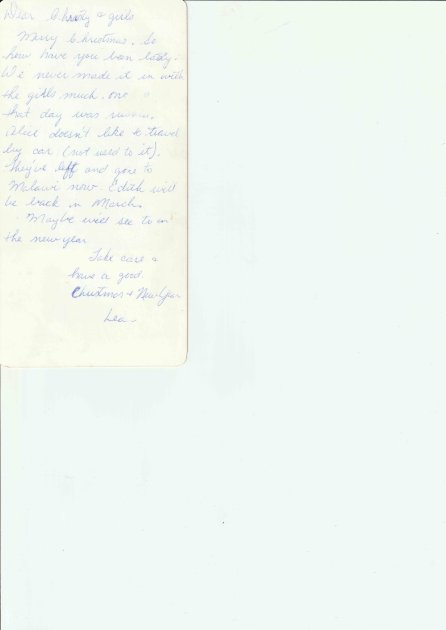 Dear Christy & girls
Merry Christmas. So
how have you been lately.
We never made it in with
the girls much. one
that day was
Alice doesn't like to travel
by car (not used to it).
They've left and gone to
Malawi now. Edith will
be back in March.
Maybe will see you in
the new year
Take care &
have a good
Christmas & New Year
Lea